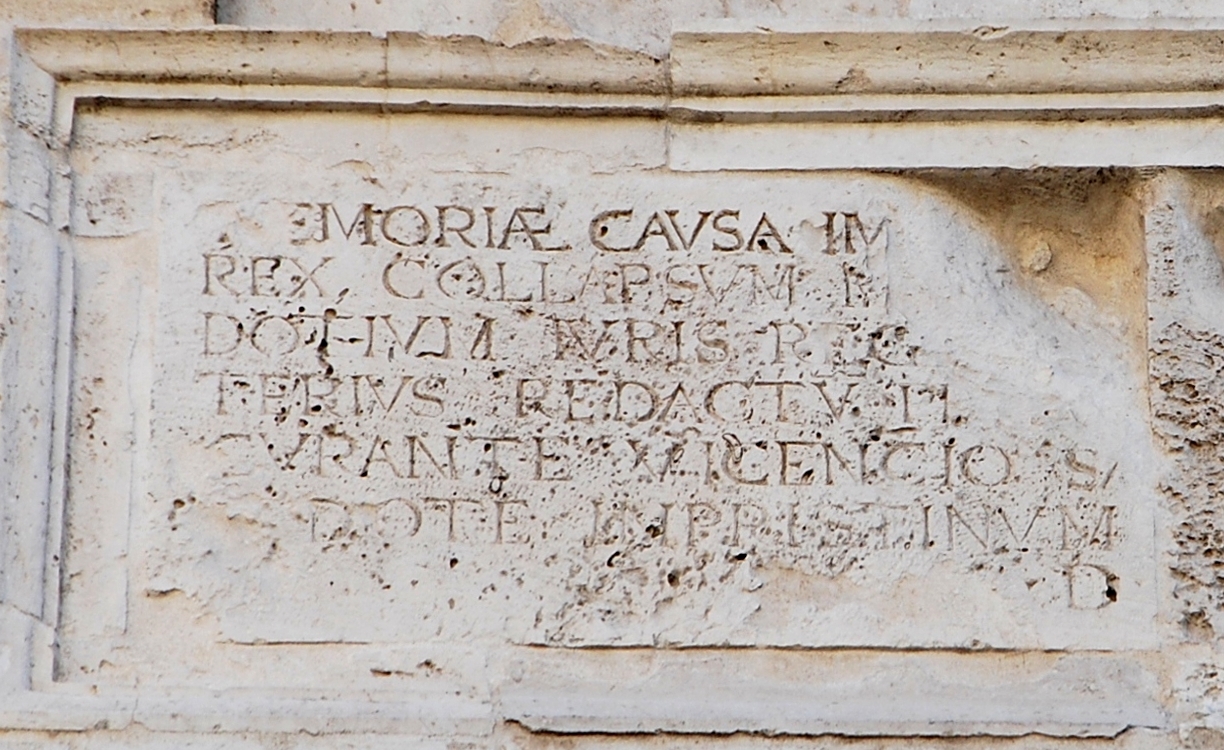 EMORIÆ CAVSA IM
REX COLLAPSVM
DOTIVM IVRIS REG
TERIVS REDACTVM
CVRANTE VICENCIO SA
DOTE INPRISTINVM
D